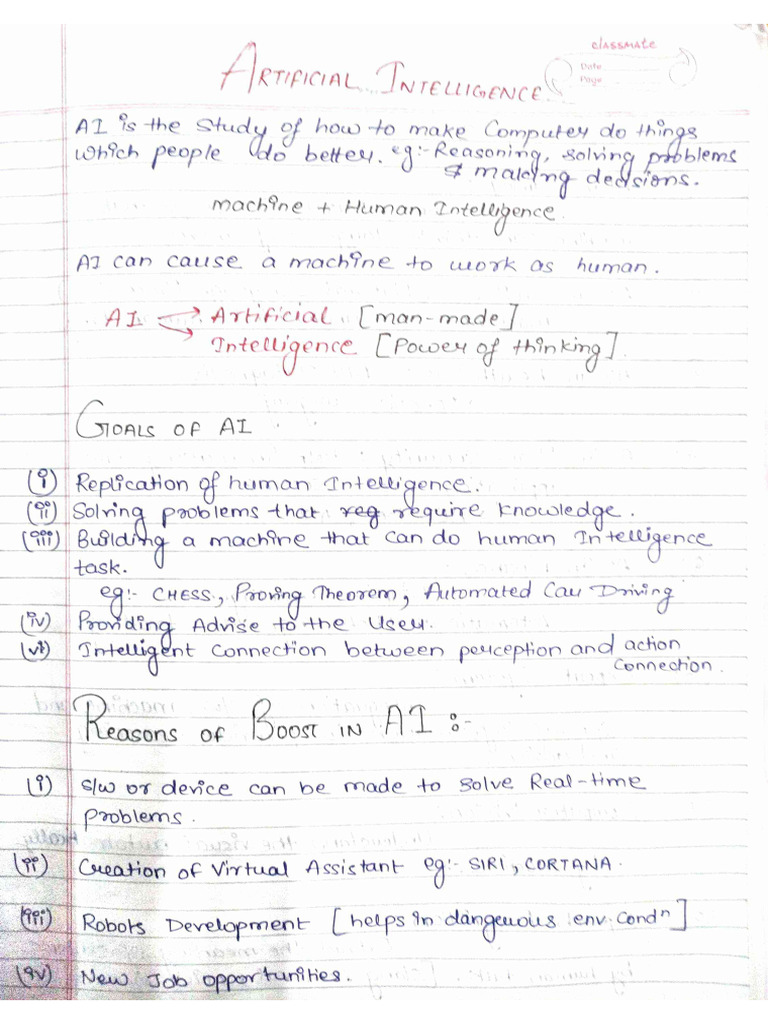 classmate
Date
Page
ARTIFICIAL INTELLIGENCE
AI is the study of how to make Computer do things
which people do better. eg:- Reasoning, solving problems
& making decisions.
machine + Human Intelligence
AI can cause a machine to work as human.
AI → Artificial [man-made]
→ Intelligence [Power of thinking]
GOALS OF AI
(i) Replication of human Intelligence.
(ii) Solving problems that req require knowledge.
(iii) Building a machine that can do human Intelligence
task.
eg:- CHESS, Proving Theorem, Automated Car Driving
(iv) Providing Advise to the User.
(vi) Intelligent Connection between perception and action
Connection.
REASONS OF BOOST IN AI :-
(i) S/w or device can be made to solve Real-time
problems.
(ii) Creation of Virtual Assistant eg:- SIRI, CORTANA.
(iii) Robots Development [helps in dangerous env. Condⁿ]
(iv) New Job opportunities.